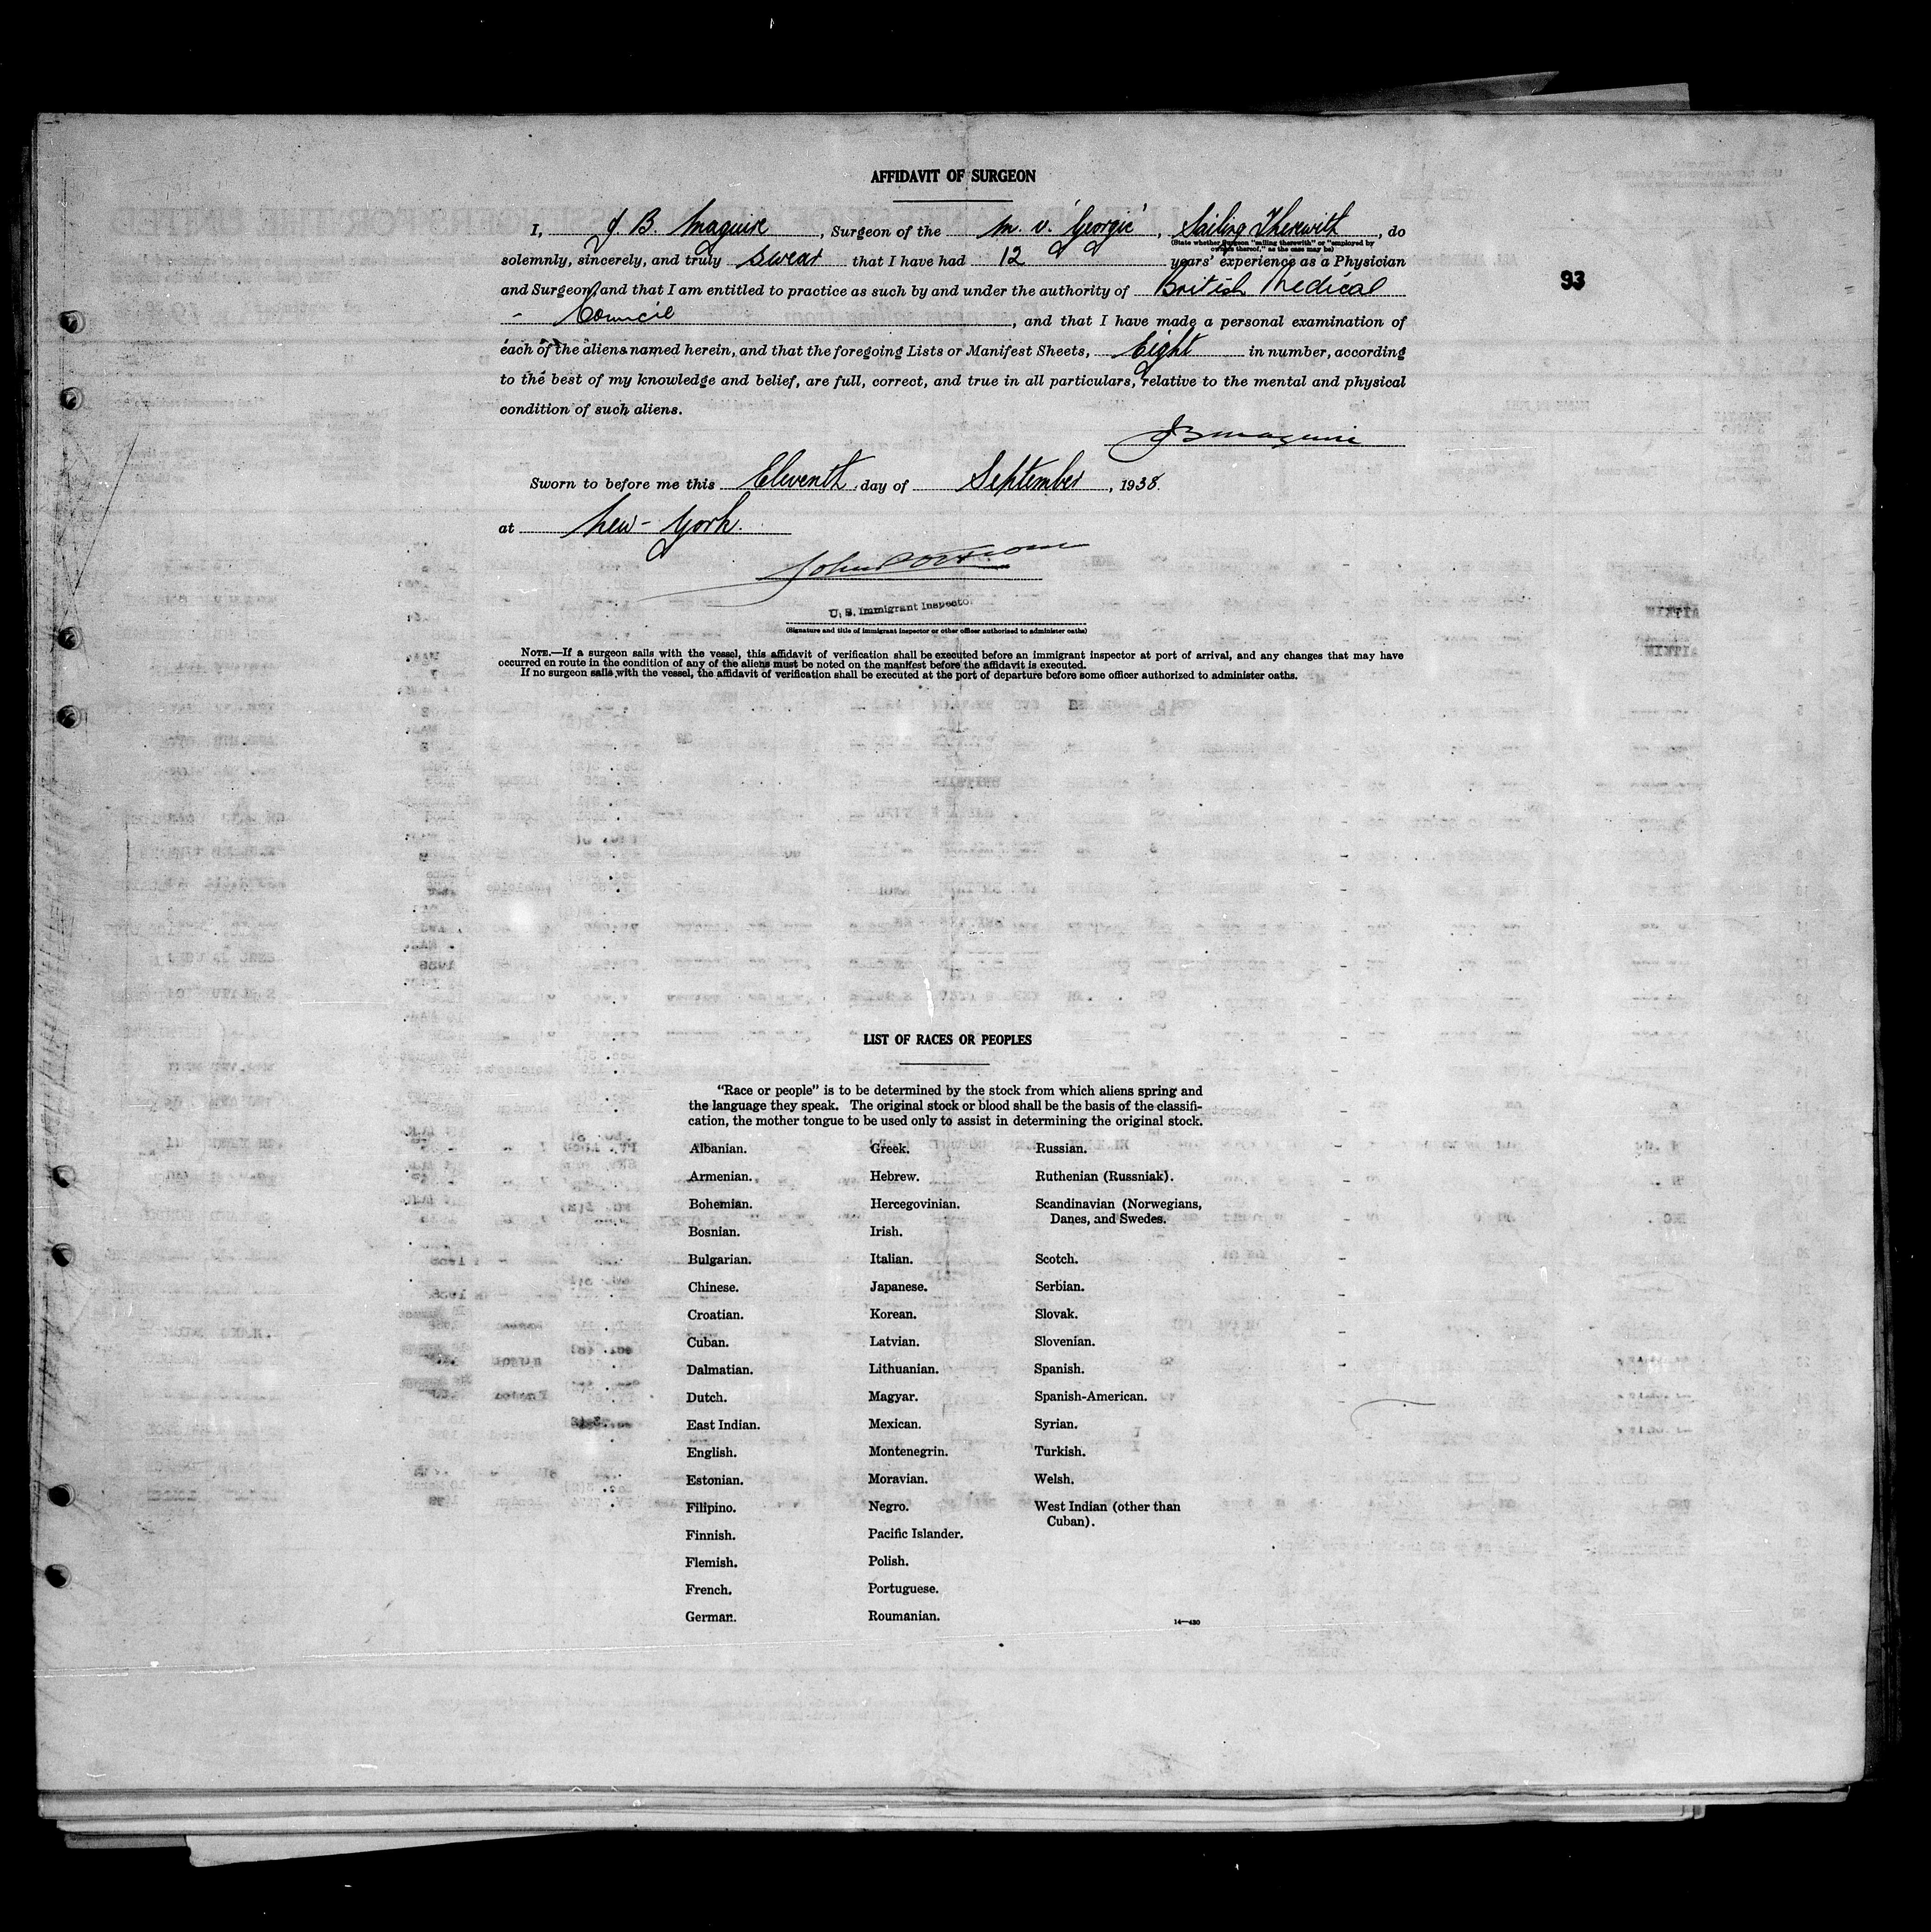 AFFIDAVIT OF SURGEON
I, J. B. Maguire, Surgeon of the M. V. 'Georgic', Sailing Therewith, do
(State whether Surgeon "sailing therewith" or "employed by
owners thereof," as the case may be)
solemnly, sincerely, and truly swear that I have had 12 years' experience as a Physician
and Surgeon, and that I am entitled to practice as such by and under the authority of British Medical
- Council, and that I have made a personal examination of
93
each of the aliens named herein, and that the foregoing Lists or Manifest Sheets, Eight in number, according
to the best of my knowledge and belief, are full, correct, and true in all particulars, relative to the mental and physical
condition of such aliens.
J B Maguire
Sworn to before me this Eleventh day of September, 1938.
at New-York.
John
U. S. Immigrant Inspector
(Signature and title of immigrant inspector or other officer authorized to administer oaths)
NOTE.—If a surgeon sails with the vessel, this affidavit of verification shall be executed before an immigrant inspector at port of arrival, and any changes that may have
occurred en route in the condition of any of the aliens must be noted on the manifest before the affidavit is executed.
If no surgeon sails with the vessel, the affidavit of verification shall be executed at the port of departure before some officer authorized to administer oaths.
LIST OF RACES OR PEOPLES
"Race or people" is to be determined by the stock from which aliens spring and
the language they speak. The original stock or blood shall be the basis of the classifi-
cation, the mother tongue to be used only to assist in determining the original stock.
Albanian.
Armenian.
Bohemian.
Bosnian.
Bulgarian.
Chinese.
Croatian.
Cuban.
Dalmatian.
Dutch.
East Indian.
English.
Estonian.
Filipino.
Finnish.
Flemish.
French.
German.
Greek.
Hebrew.
Hercegovinian.
Irish.
Italian.
Japanese.
Korean.
Latvian.
Lithuanian.
Magyar.
Mexican.
Montenegrin.
Moravian.
Negro.
Pacific Islander.
Polish.
Portuguese.
Roumanian.
Russian.
Ruthenian (Russniak).
Scandinavian (Norwegians,
Danes, and Swedes.
Scotch.
Serbian.
Slovak.
Slovenian.
Spanish.
Spanish-American.
Syrian.
Turkish.
Welsh.
West Indian (other than
Cuban).
14—430